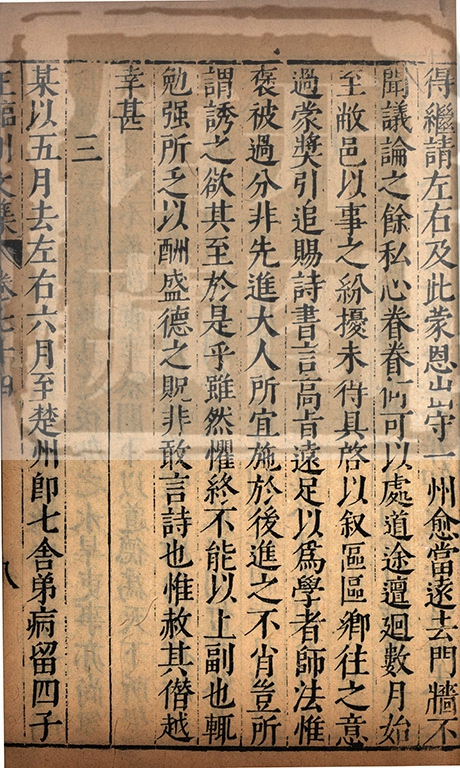 得繼請左右及此蒙恩出守一州愈當遠去門牆不
聞議論之餘私心眷眷何可以處道途邅迴數月始
至敝邑以事之紛擾未得具啓以叙區區鄉往之意
過蒙奬引追賜詩書言高旨遠足以爲學者師法惟
褒被過分非先進大人所宜施於後進之不肖豈所
謂誘之欲其至於是乎雖然懼終不能以上副也輒
勉强所乏以酬盛德之貺非敢言詩也惟赦其僭越
幸甚
三
某以五月去左右六月至楚州即七舍弟病留四子
王臨川文集 卷七十四 八